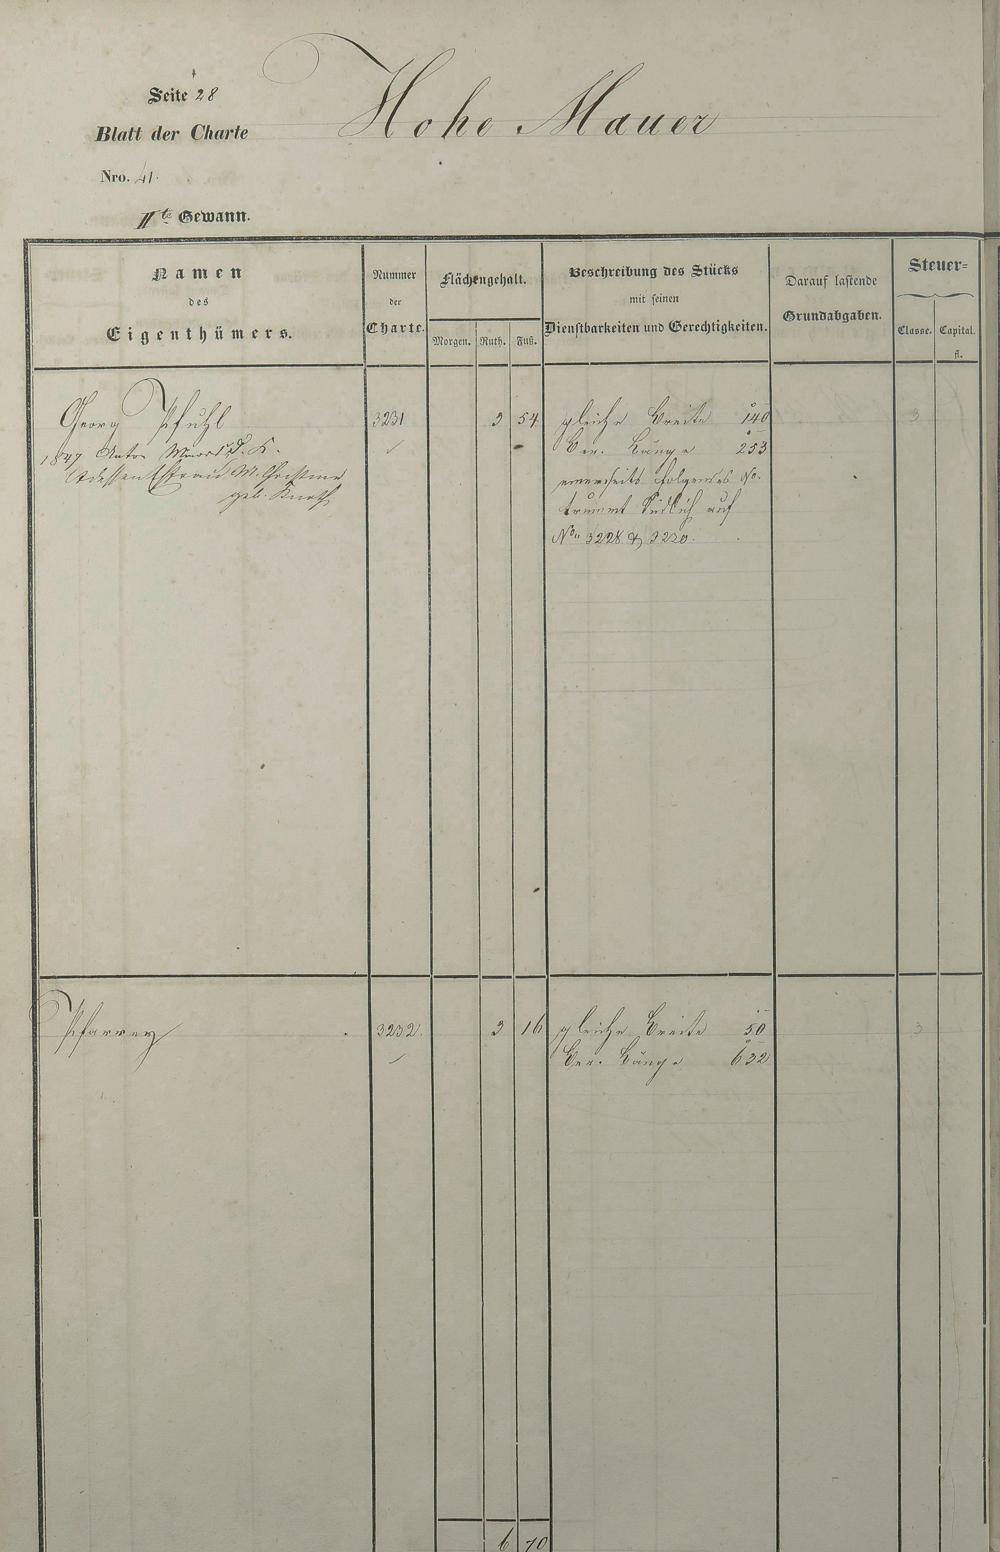 Seite 28
Hohe Mauer
Blatt der Charte
Nro. 41.
IIte Gewann.
Namen
des
Eigenthümers.
Nummer
der
Charte.
Flächengehalt.
Morgen. Ruth. Fuß.
Beschreibung des Stücks
mit seinen
Dienstbarkeiten und Gerechtigkeiten.
Darauf lastende
Grundabgaben.
Steuer=
Classe. Capital.
fl.
Georg Pfuhl 3231 3 54 gleiche Breite 140 3
1847 Anton
Ber. Länge 253
Ehefrau M. Christine
geb. Knoth
einerseits folgendes No.
südlich auf
No. 3228 & 3220.
Pfarrey 3232 3 16 gleiche Breite 50 3
Ber. Länge 632
6 70